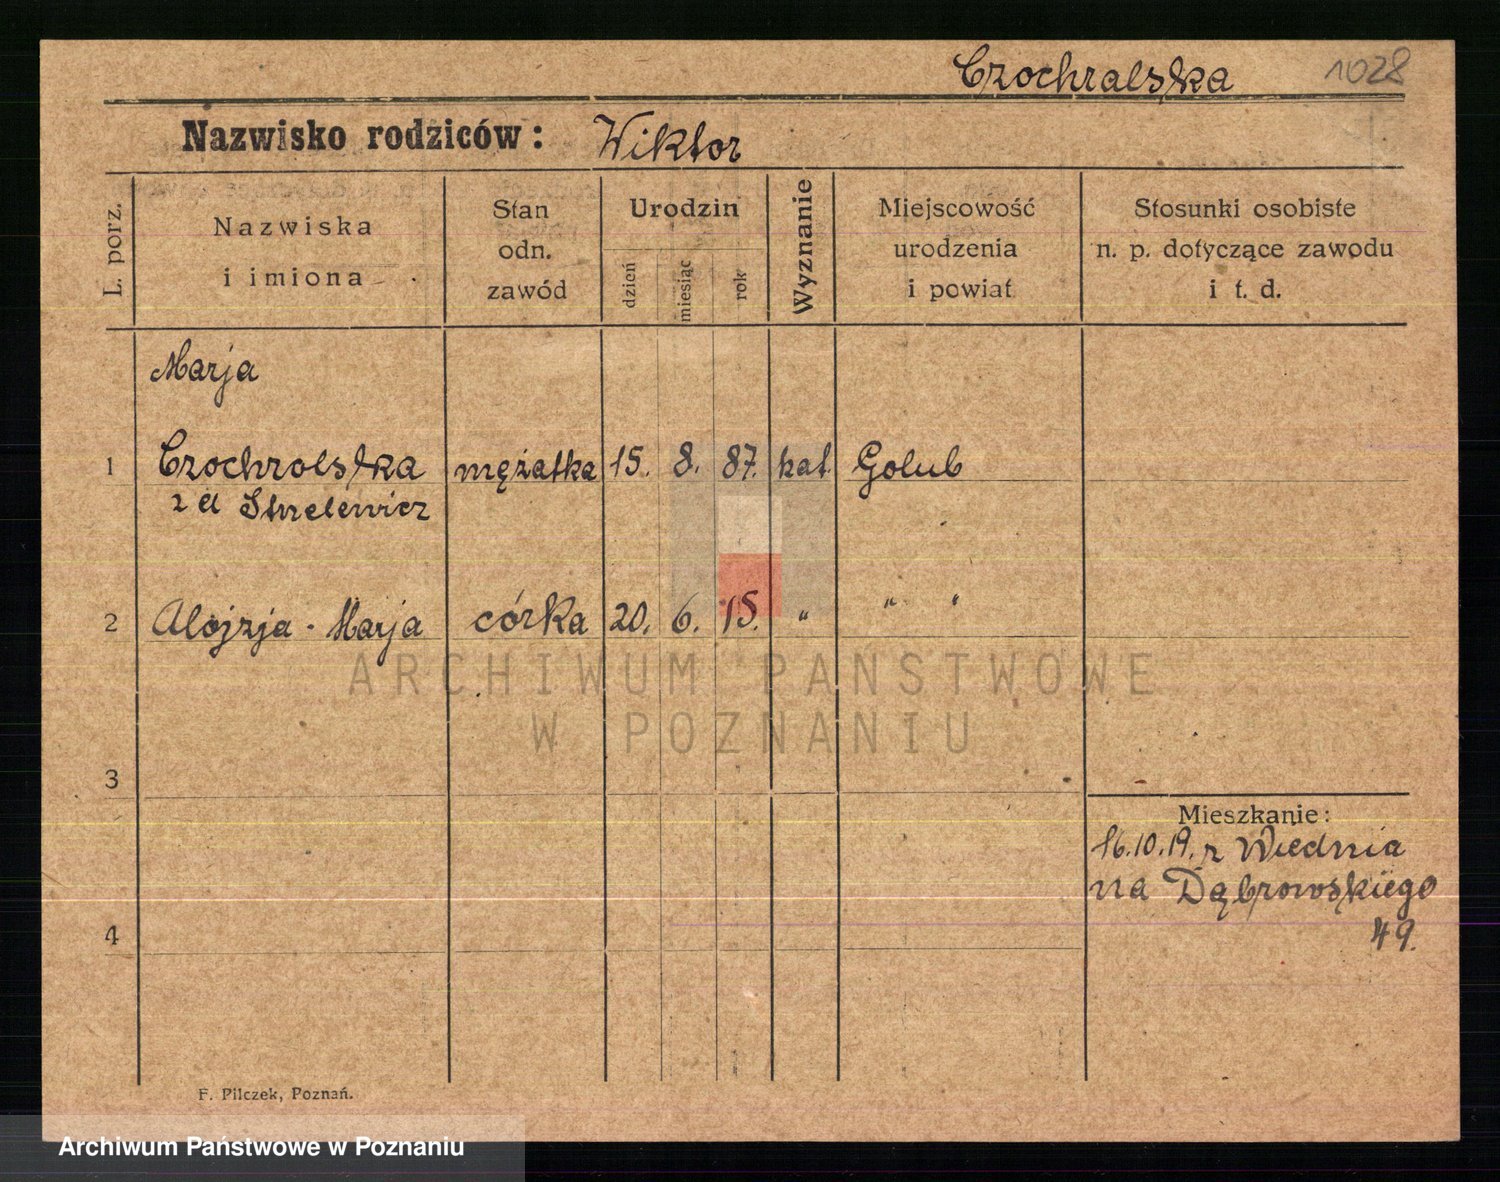 Czochralska 1028
Nazwisko rodziców: Wiktor
L. porz.
Nazwiska
i imiona
Stan
odn.
zawód
Urodzin
dzień
miesiąc
rok
Wyznanie
Miejscowość
urodzenia
i powiat
Stosunki osobiste
n. p. dotyczące zawodu
i t. d.
Marja
1 Czochrolska mężatka 15. 8. 87. kat. Golub
z d Strzelewicz
2 Alojzja - Marja córka 20. 6. 15. " " "
ARCHIWUM PAŃSTWOWE
W POZNANIU
3
Mieszkanie:
16.10.19. z Wiednia
na Dąbrowskiego
49.
4
F. Pilczek, Poznań.
Archiwum Państwowe w Poznaniu